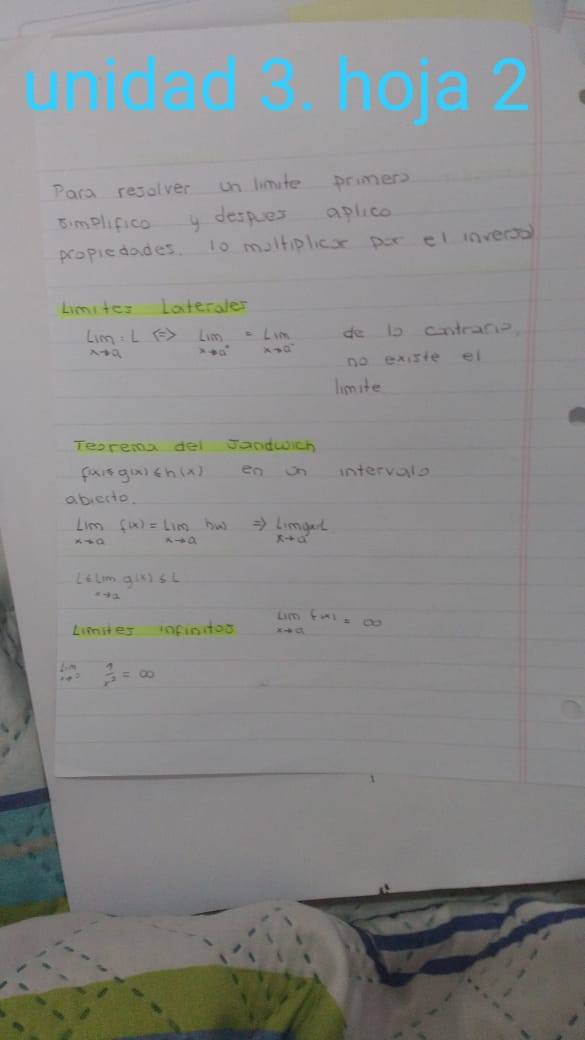 unidad 3. hoja 2
Para resolver un limite primero
simplifico y despues aplico
propiedades. lo multiplicar por el inverso
Limites Laterales
Lim : L <=> Lim = Lim de lo contrario,
x→a x→a⁺ x→a⁻ no existe el
limite
Teorema del Sandwich
f(x)≤g(x)≤h(x) en un intervalo
abierto.
Lim f(x) = Lim h(x) => Lim g(x)=L
x→a x→a x→a
L≤Lim g(x)≤L
x→a
Limites infinitos Lim f(x) = ∞
x→a
Lim 1/x² = ∞